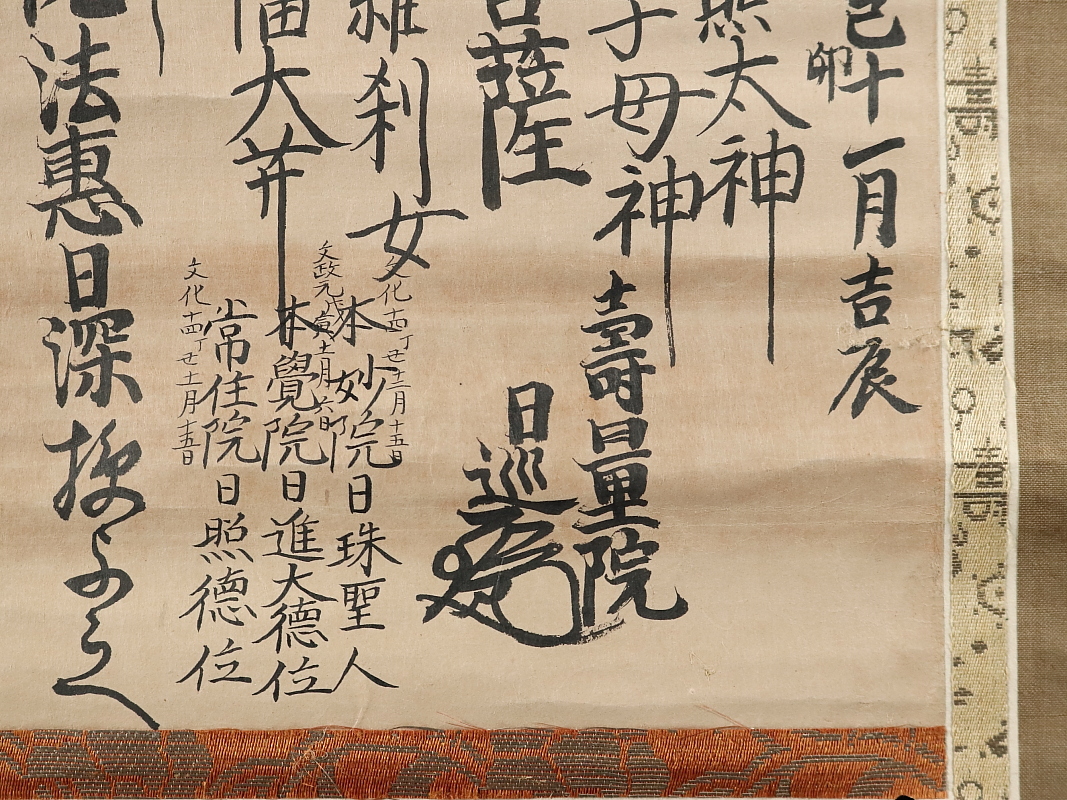 己卯十一月吉辰
照太神
子母神
壽量院
菩薩
日巡
刹女
文化十四丁丑十二月十五日
本妙院日珠聖人
文政元戊寅十一月六日
本覺院日進大德位
大井
文化十四丁丑十一月十五日
常住院日照德位
法惠日深授与之